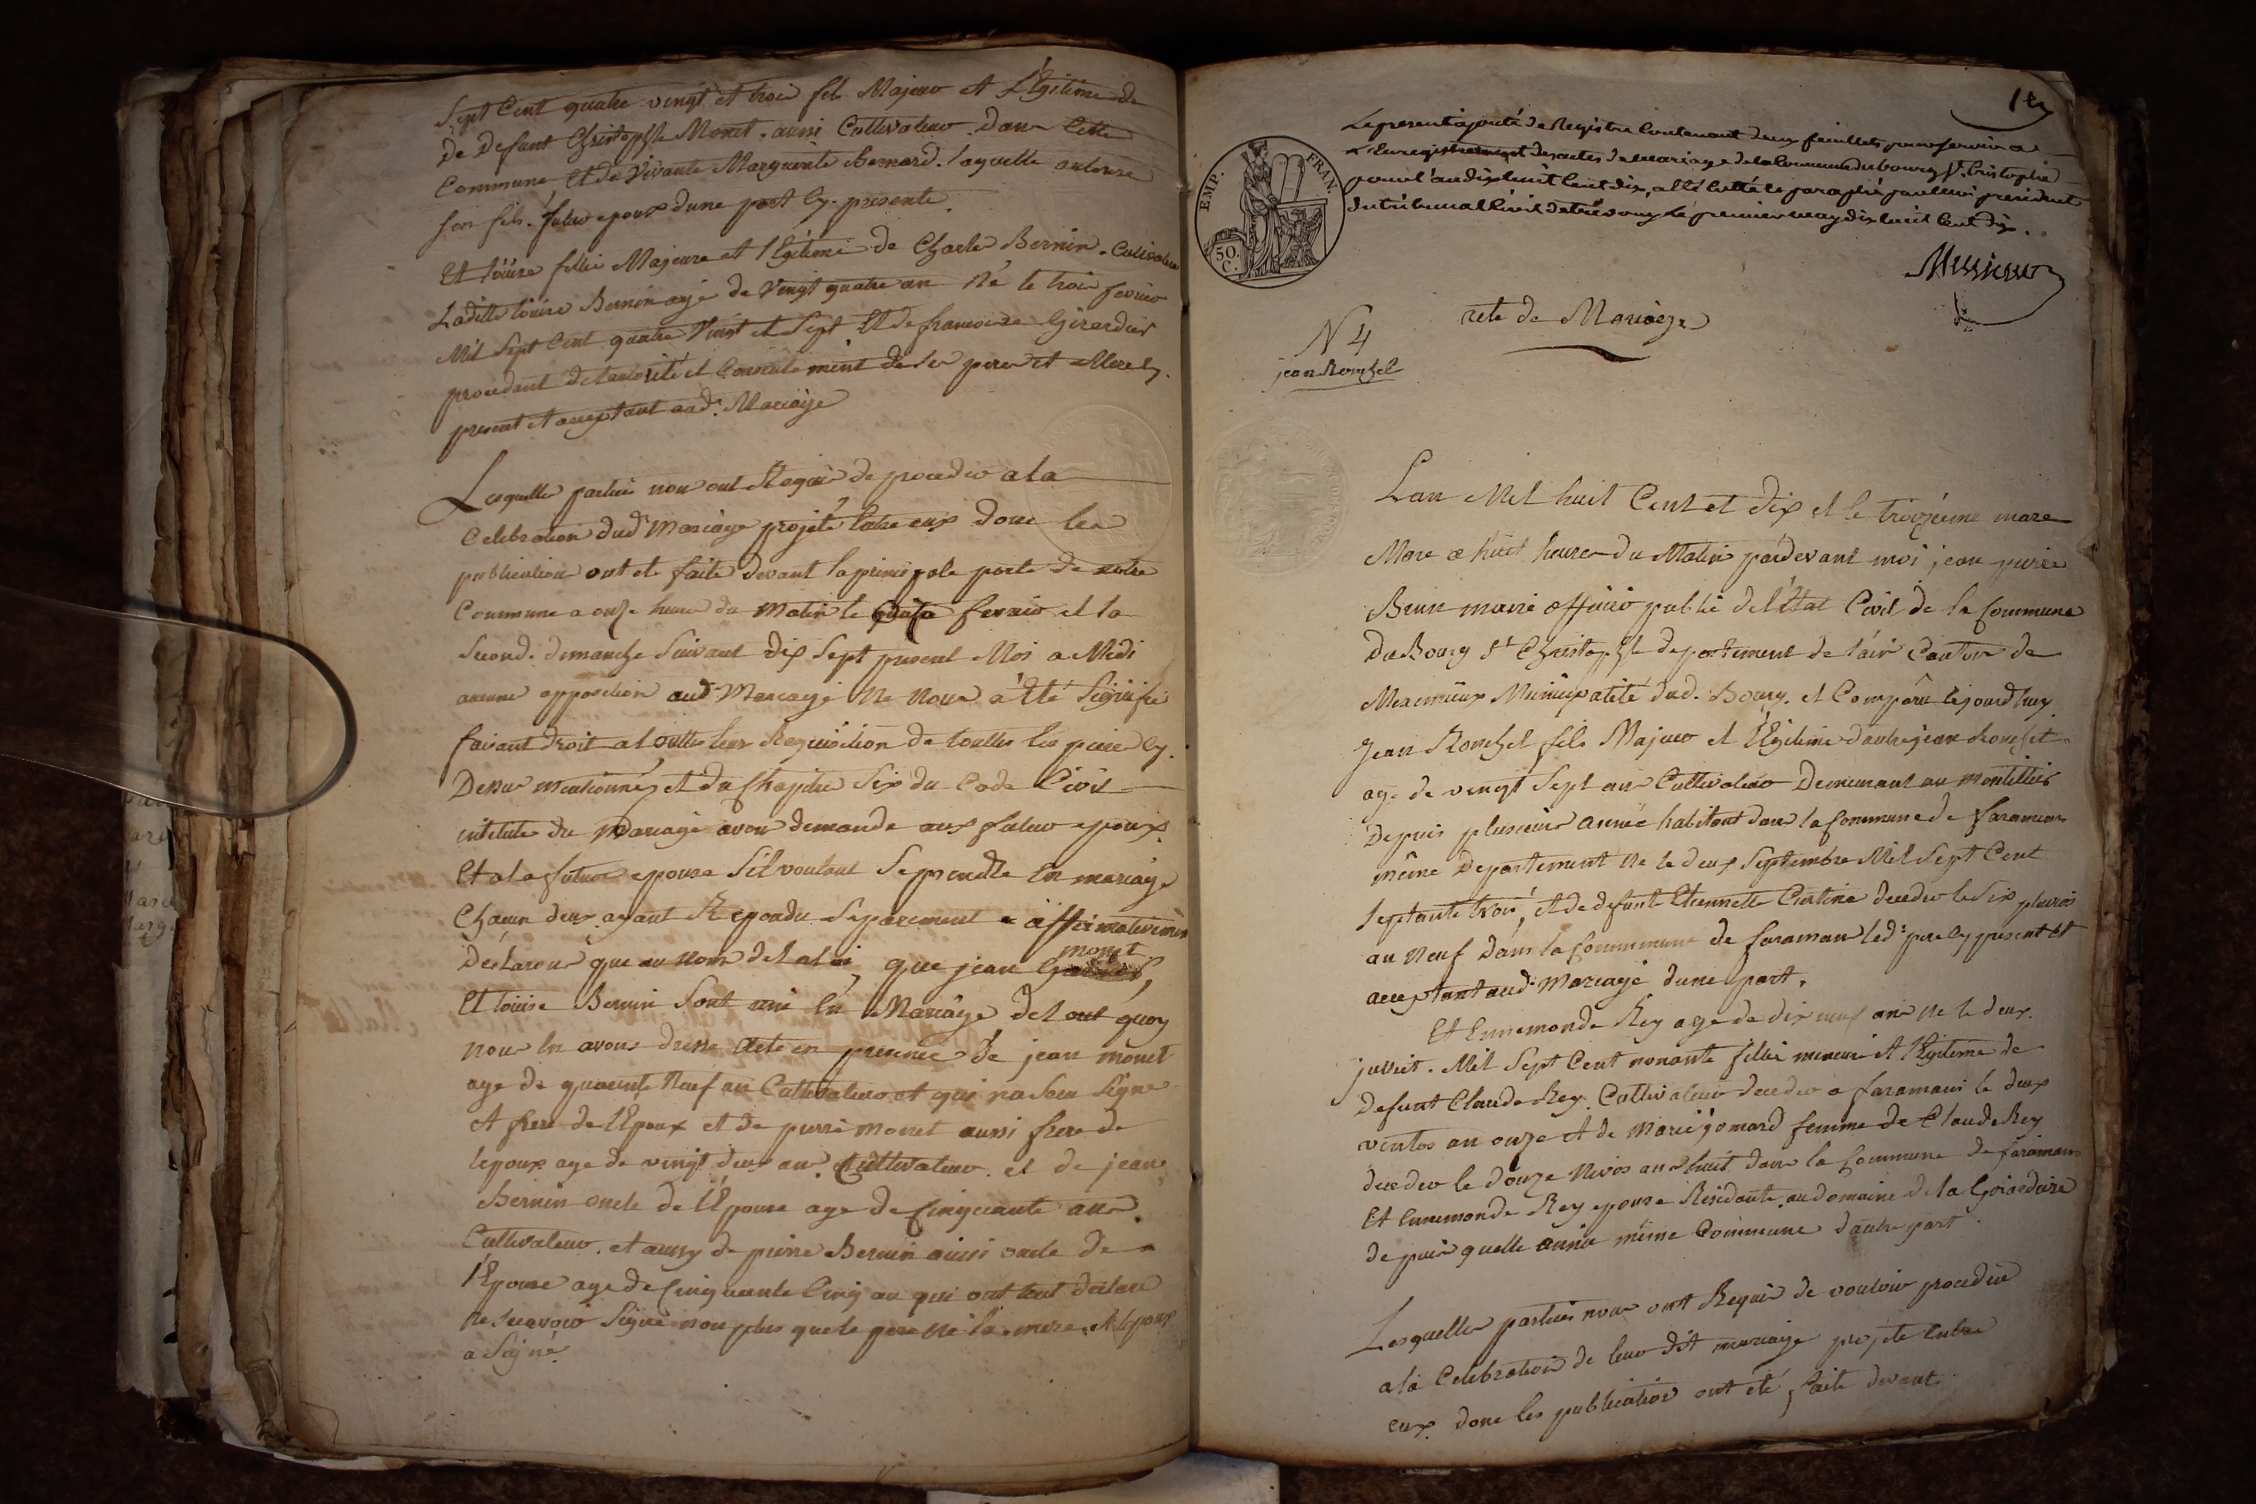 Sept Cent quatre vingt et trois fils Majeur et Légitime de
De defunt Christophle Monet. aussi Cultivateur. dans cette
Commune Et de vivante Marguerite Bernard. laquelle autorise
son fils. futur epoux dune part Cy. presente.
Et Louise fillie Majeure et légitime de Charle Bernin. Cultivateur
Laditte louise Bernin agé de vingt quatre an né le trois fevrier
Mil Sept Cent quatre vingt et Sept Et de francoise Girardier
procedant de lauorité et Consentement de ses pere et Mere Cy.
present et acceptant aud. Mariage
Lesquelle partie nous ont Requis de proceder a la
Celebration dud mariage projeté entre eux donc les
publication ont ete faite devant la principale porte de notre
Commune a onze heure du matin le fevrier et la
Second. dimanche Suivant dix Sept present Moi a Midi
aucune opposition aud Mariage Ne Nous a été Signifié
faisant droit a leur Requisition de toutte les piece Cy.
Dessus mentionnés et du Chapitre Six du Code Civil
intitulé du Mariage avon demande aux futur epoux
Et a la future epouse Sil voulant Seprendre En mariage
Chacun deux ayant Repondu Separement affirmativement
Declarons que au nom de la loi, que jean monet
Et louise Bernin Sont uni En Mariage de tout quoy
nous En avons dressé acte en presence de jean monet
age de quarente Neuf an Cultivateur et qui na Seu Signe
et frere de lEpoux et de pierre monet aussi frere de
lepoux age de vingt deux an Cultivateur. et de jean
Bernin oncle de lEpouse age de Cinquante ans.
Cultivateur. et aussy de pierre Bernin aussi oncle de
lEpouse age de Cinquante Cinq an qui ont tout declare
ne Scavoir Signé non plus que le pere ni la mere. et lepoux
a Signé.
1er
Le present ajouté de Registre Contenant deux feuillets pour servir a
l'Enregistrement des actes de Mariage de la Commune du bourg St. Cristophe
pour l'an dix huit Cent dix, a été Cotté et paraphé par Nous president
du tribunal Civil de trevoux le premier may dix huit Cent dix.
EMP. FRAN.
50. C.
N 4
jean Ronchet
acte de Mariage
Lan Mil huit Cent et dix et le troizieme mare
Mare a huit heure du Matin pardevant moi jean pierre
Brun maire officier public de l'État Civil de la Commune
Du Bourg St Christophle departement de l'ain Canton de
Meximieux Municipalité dud. Bourg. et Comparu lejourdhuy
Jean Ronchet fils Majeur et lEgitime dautre jean Ronchet
age de vingt Sept an Cultivateur Demeurant au Montillier
Depuis plusieurs année habitant dans la Commune de faramans
même Departement Ne le deux Septembre Mil Sept Cent
Septante trois, et de defunte Etiennette decedee le Six pluvios
an Neuf dans la Commune de faraman led. pere Cy present et
acceptant aud. Mariage dune part.
Et Ennemonde Rey age de dix neuf ans ne le deux
juliet. Mil Sept Cent nonante fillie mineure et lEgitime de
defunt Claude Rey. Cultivateur decedee a faramans le deux
ventos an onze et de Marie gomard femme de Claude Rey
decedee le douze Nivos an huit dans la Commune de faramans
Et Ennemonde Rey epouse Residante au domaine de la
depuis quelle année même Commune dautre part.
Lesquelles parties nous ont Requis de vouloir proceder
a la Celebration de leur dit mariage projete Entre
eux donc les publication ont été faite devant